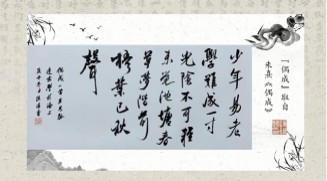 「偶成」取自
朱熹《偶成》
少年易老
學難成一寸
光陰不可輕
未覺池塘春
草夢階前
梧葉已秋
聲